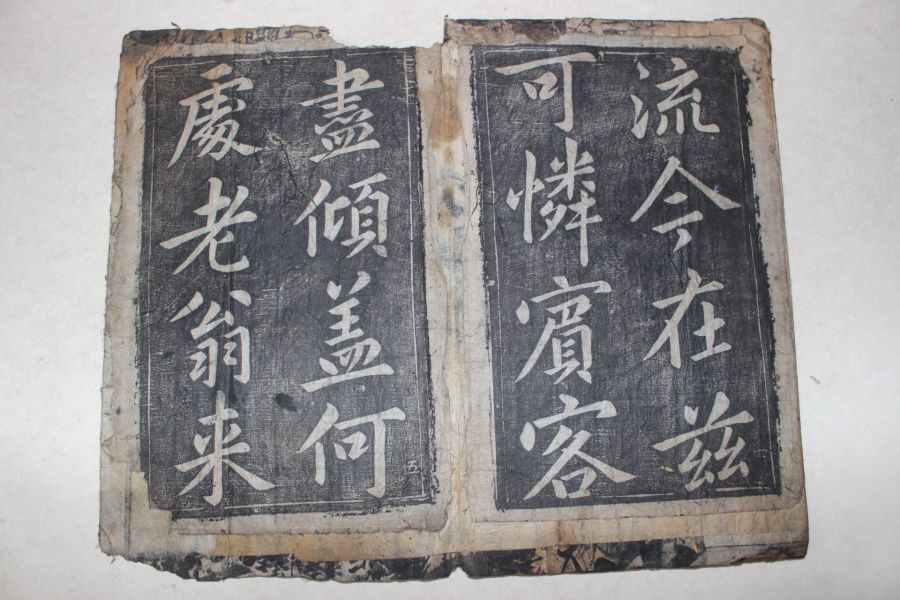 流今在茲
可憐賓客
盡傾盖何
處老翁来
五